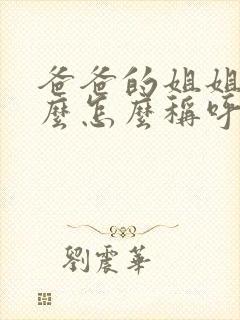 爸爸的姐姐
麼怎麼稱呼
劉震華